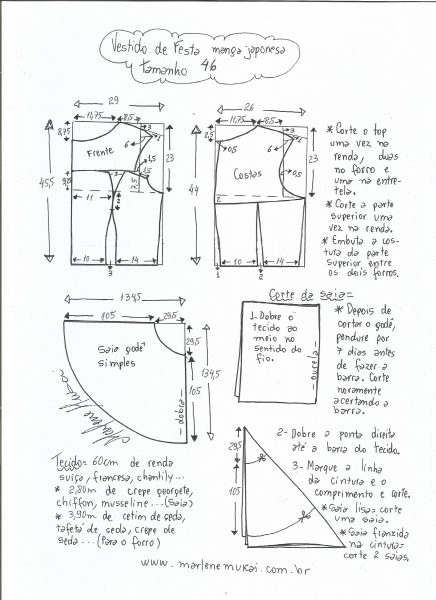 Vestido de Festa manga japonesa
tamanho 46
29
11,75
8,5
3
1
8,75
6
Frente
1,5
1,5
23
45,5
9,15
3
7,5
11
2
10
14
3
26
11,75
8,5
3
1
2,5
0,5
6
Costas
0,5
23
44
2
10
14
1
2
* Corte o top
uma vez na
renda, duas
no forro e
uma na entre-
tela.
* Corte a parte
superior uma
vez na renda.
* Embuta a cos-
tura da parte
superior entre
os dois forros.
134,5
105
29,5
Saia godê
simples
29,5
134,5
105
- dobra -
Marlene Mukai
Corte da saia=
1- Dobre o
tecido ao
meio no
sentido do
fio.
- ourela -
* Depois de
cortar o godê,
pendure por
7 dias antes
de fazer a
barra. Corte
novamente
acertando a
barra.
29,5
105
2- Dobre a ponta direita
até a barra do tecido.
3- Marque a linha
da cintura e o
comprimento e corte.
* Saia lisa= corte
uma saia.
* Saia franzida
na cintura=
corte 2 saias.
Tecido= 60cm de renda
suiça, francesa, chantily...
* 2,80m de crepe georgete,
chiffon, musseline ...(Saia)
* 3,90m de cetim de seda,
tafetá de seda, crepe de
seda ...(Para o forro)
www.marlenemukai.com.br